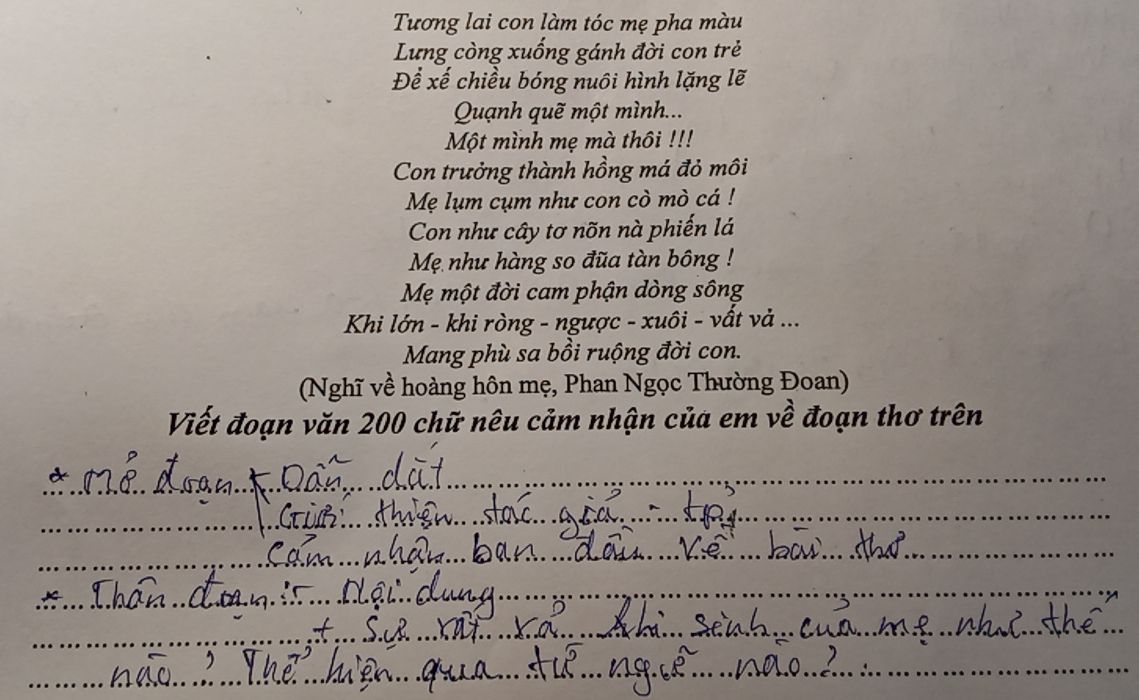 Tương lai con làm tóc mẹ pha màu
Lưng còng xuống gánh đời con trẻ
Để xế chiều bóng nuôi hình lặng lẽ
Quạnh quẽ một mình...
Một mình mẹ mà thôi !!!
Con trưởng thành hồng má đỏ môi
Mẹ lụm cụm như con cò mò cá !
Con như cây tơ nõn nà phiến lá
Mẹ như hàng so đũa tàn bông !
Mẹ một đời cam phận dòng sông
Khi lớn - khi ròng - ngược - xuôi - vất vả ...
Mang phù sa bồi ruộng đời con.
(Nghĩ về hoàng hôn mẹ, Phan Ngọc Thường Đoan)
Viết đoạn văn 200 chữ nêu cảm nhận của em về đoạn thơ trên
* Mở đoạn Dẫn dắt
Giới thiện tác giả - tp
Cảm nhận ban đầu về bài thơ
* Thân đoạn: - Nội dung
+ Sự vất vả hi sinh của mẹ như thế
nào? Thể hiện qua từ ngữ nào?